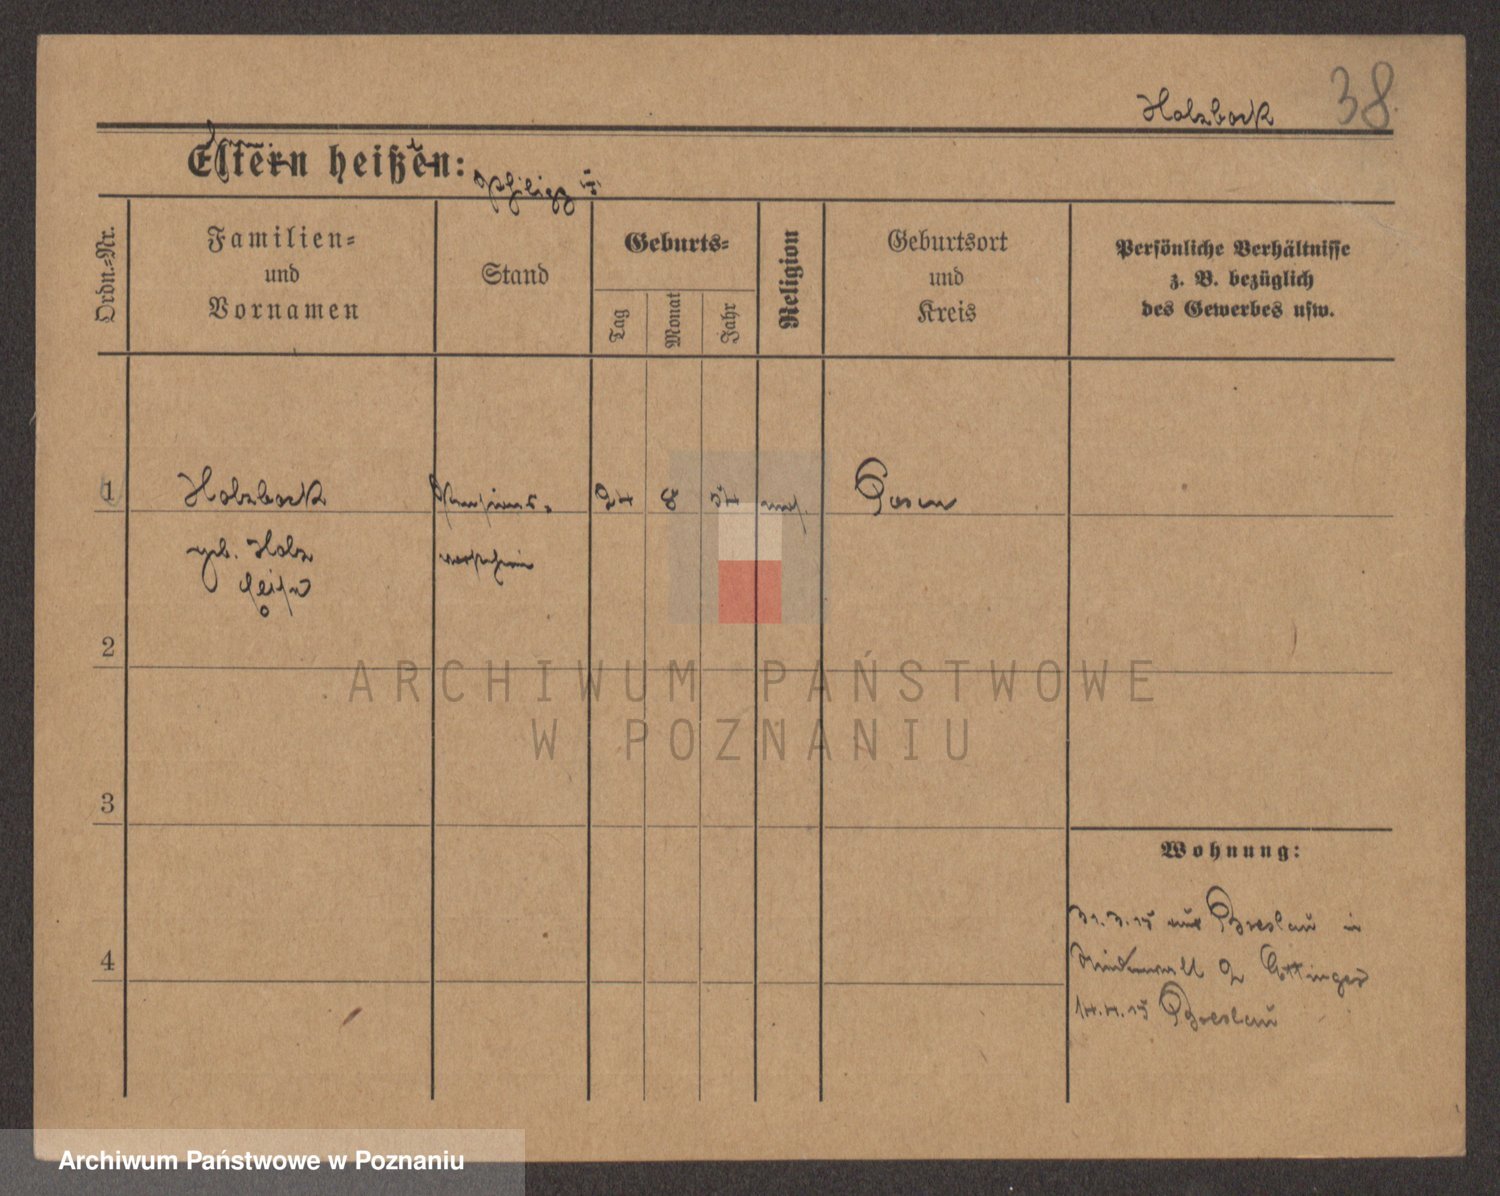 Holzbock 38
Eltern heißen: Philipp u.
Ordn.-Nr.
Familien-
und
Vornamen
Stand
Geburts-
Tag
Monat
Jahr
Religion
Geburtsort
und
Kreis
Persönliche Verhältnisse
z. B. bezüglich
des Gewerbes usw.
1 Holzbock Pensions- 24 8 54 mos. Posen
geb. Holz
vorsteherin
2
3
4
Wohnung:
31.3.15 aus Breslau in
2 Ettinger
14.4.15 Breslau
ARCHIWUM PAŃSTWOWE
W POZNANIU
Archiwum Państwowe w Poznaniu